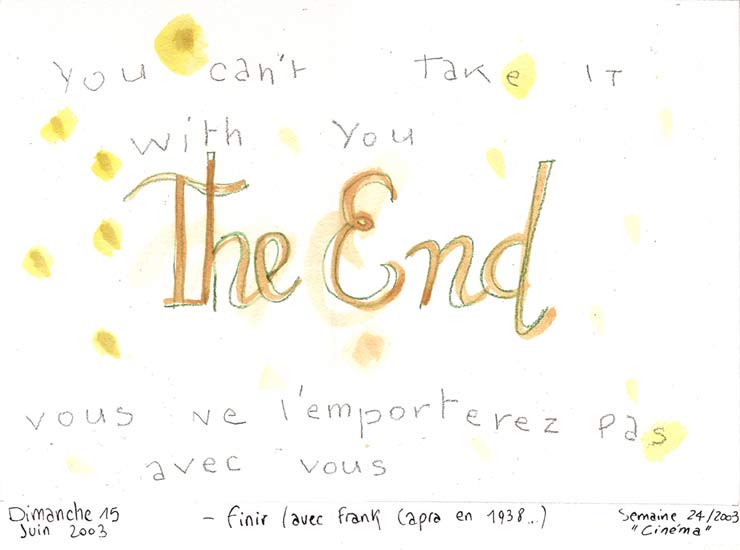 You can't Take IT
with You
The End
vous ne l'emporterez pas
avec vous
Dimanche 15
Juin 2003
- finir (avec Frank (apra en 1938...)
Semaine 24/2003
"Cinéma"